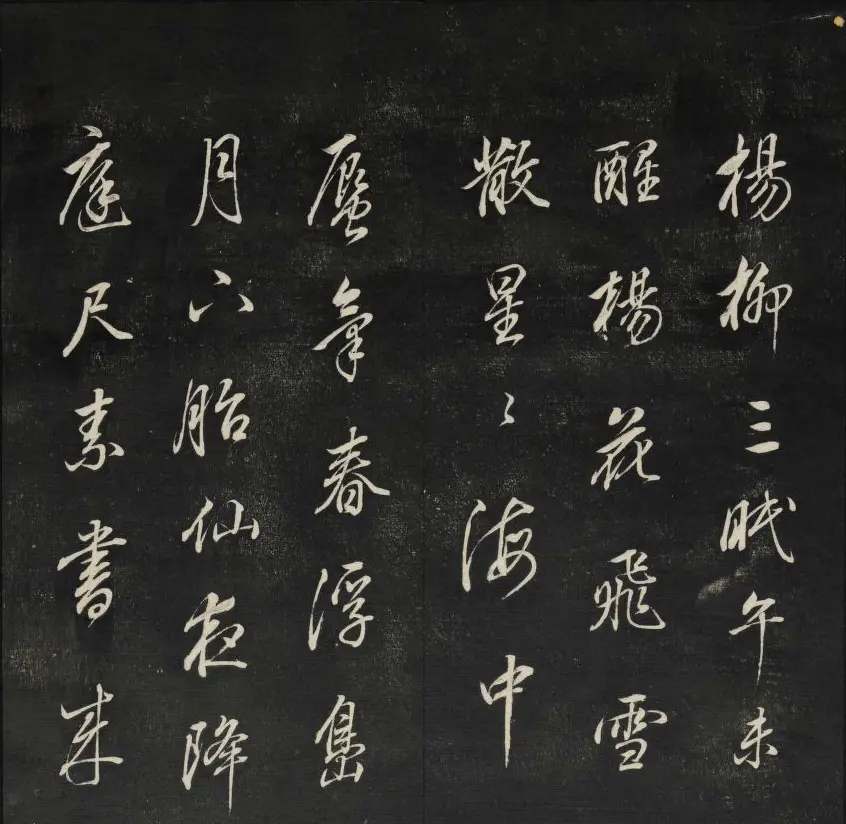 楊柳三眠午未
醒楊花飛雪
散星々海中
蜃氣春浮島
月下胎仙夜降
庭尺素書